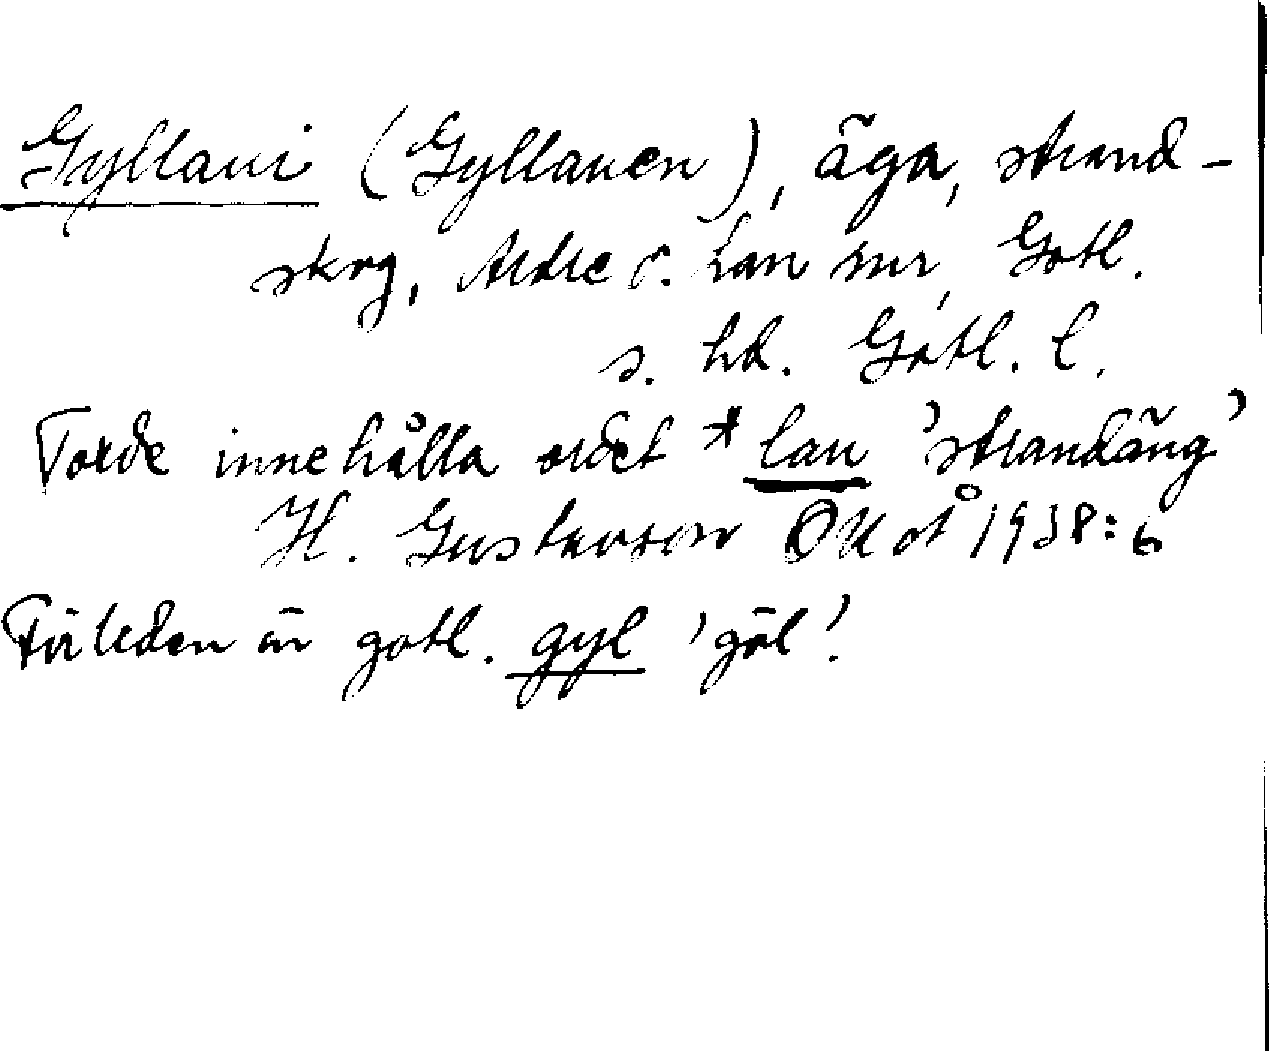 Gyllaui (Gyllauen), äga, strand-
skog, Ardre o. Lau snr, Gotl.
s. hd. Gotl. l.
Torde innehålla ordet *lau 'strandäng'
H. Gustavson OUoÅ 1938:6
Förleden är gotl. gyl 'göl'.